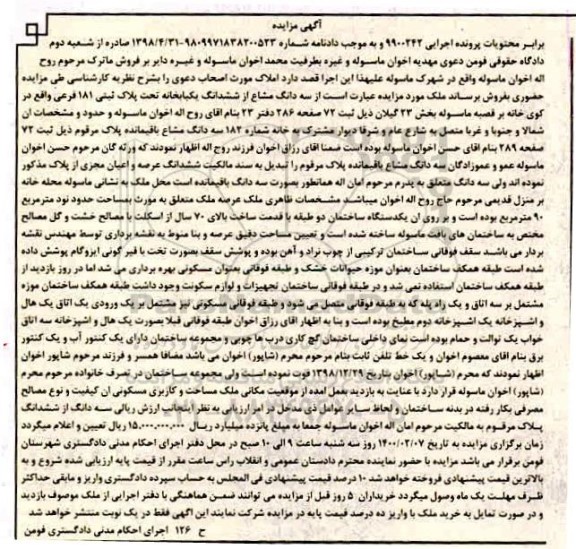 آگهی مزایده
برابر محتویات پرونده اجرایی ۹۹۰۰۲۴۲ و به موجب دادنامه شماره ۹۸۰۹۹۷۱۸۳۸۲۰۰۵۲۳-۱۳۹۸/۴/۳۱ صادره از شعبه دوم
دادگاه حقوقی فومن دعوی مهدیه اخوان ماسوله و غیره بطرفیت محمد اخوان ماسوله و غیره دایر بر فروش ماترک مرحوم روح
اله اخوان ماسوله واقع در شهرک ماسوله علیهذا این اجرا قصد دارد املاک مورث اصحاب دعوی را بشرح نظریه کارشناسی طی مزایده
حضوری بفروش برساند ملک مورد مزایده عبارت است از سه دانگ مشاع از ششدانگ یکبابخانه تحت پلاک ثبتی ۱۸۱ فرعی واقع در
کوی خانه بر قصبه ماسوله بخش ۲۳ گیلان ذیل ثبت ۷۲ صفحه ۲۸۶ دفتر ۲۳ بنام اقای روح اله اخوان ماسوله و حدود و مشخصات ان
شمالا و جنوبا و غربا متصل به شارع عام و شرقا دیوار مشترک به خانه شماره ۱۸۲ سه دانگ مشاع باقیمانده پلاک مرقوم ذیل ثبت ۷۲
صفحه ۲۸۹ بنام اقای حسن اخوان ماسوله بوده است ضمنا اقای رزاق اخوان فرزند روح اله اظهار نمودند که ورثه گان مرحوم حسن اخوان
ماسوله عمو و عموزادگان سه دانگ مشاع باقیمانده پلاک مرقوم را تبدیل به سند مالکیت ششدانگ عرصه و اعیان مجزی از پلاک مذکور
نموده اند ولی سه دانگ متعلق به پدرم مرحوم امان اله همانطور بصورت سه دانگ باقیمانده است محل ملک به نشانی ماسوله محله خانه
بر منزل قدیمی مرحوم حاج روح اله اخوان میباشد مشخصات ظاهری ملک عرصه ملک متعلق به مورث بمساحت حدود نود مترمربع
۹۰ مترمربع بوده است و بر روی ان یکدستگاه ساختمان دو طبقه با قدمت ساخت بالای ۷۰ سال از اسکلت با مصالح خشت و گل مصالح
مختص به ساختمان های بافت ماسوله ساخته شده است و تعیین مساحت دقیق عرصه و بنا منوط به نقشه برداری توسط مهندس نقشه
بردار می باشد سقف فوقانی ساختمان ترکیبی از چوب نراد و آهن بوده و پوشش سقف بصورت تخت با قیر گونی ایزوگام پوشش داده
شده است طبقه همکف ساختمان بعنوان موزه حیوانات خشک و طبقه فوقانی بعنوان مسکونی بهره برداری می شد اما در روز بازدید از
طبقه همکف ساختمان استفاده نمی شد و در طبقه فوقانی ساختمان تجهیزات و لوازم سکونت وجود داشت طبقه همکف ساختمان موزه
مشتمل بر سه اتاق و یک راه پله که به طبقه فوقانی متصل می شود و طبقه فوقانی مسکونی نیز مشتمل بر یک ورودی یک اتاق یک هال
و اشپزخانه یک اشپزخانه دوم مطبخ بوده است و بنا به اظهار اقای رزاق اخوان طبقه فوقانی قبلا بصورت یک هال و اشپزخانه سه اتاق
خواب یک توالت و حمام بوده است نمای داخلی ساختمان گچ کاری درب ها چوبی و مجموعه ساختمان دارای یک کنتور آب و یک کنتور
برق بنام اقای معصوم اخوان و یک خط تلفن ثابت بنام مرحوم محرم (شاپور) اخوان می باشد مضافا همسر و فرزند مرحوم شاپور اخوان
اظهار نمودند که محرم (شاپور) اخوان بتاریخ ۱۳۹۸/۱۲/۲۹ فوت نموده است ولی مجموعه ساختمان در تصرف خانواده مرحوم محرم
(شاپور) اخوان ماسوله قرار دارد با عنایت به بازدید بعمل امده از موقعیت مکانی ملک مساحت و کاربری مسکونی ان کیفیت و نوع مصالح
مصرفی بکار رفته در بدنه ساختمان و لحاظ سایر عوامل ذی مدخل در امر ارزیابی به نظر اینجانب ارزش ریالی سه دانگ از ششدانگ
پلاک مرقوم به مالکیت مرحوم امان اله اخوان ماسوله جمعا به مبلغ پانزده میلیارد ریال ۱۵٫۰۰۰٫۰۰۰٫۰۰۰ ریال تعیین و اعلام میگردد
زمان برگزاری مزایده به تاریخ ۱۴۰۰/۰۲/۰۷ روز سه شنبه ساعت ۹ الی ۱۰ صبح در محل دفتر اجرای احکام مدنی دادگستری شهرستان
فومن برقرار می باشد مزایده با حضور نماینده محترم دادستان عمومی و انقلاب راس ساعت مقرر از قیمت پایه ارزیابی شده شروع و به
بالاترین قیمت پیشنهادی فروخته خواهد شد ۱۰ درصد قیمت پیشنهادی فی المجلس به حساب سپرده دادگستری واریز و مابقی حداکثر
ظرف مهلت یک ماه وصول میگردد خریداران ۵ روز قبل از مزایده می توانند ضمن هماهنگی با دفتر اجرایی از ملک موصوف بازدید
و در صورت تمایل به خرید ملک با واریز ده درصد قیمت پایه در مزایده شرکت نمایند این اگهی فقط در یک نوبت منتشر خواهد شد
ح ۱۲۶ اجرای احکام مدنی دادگستری فومن